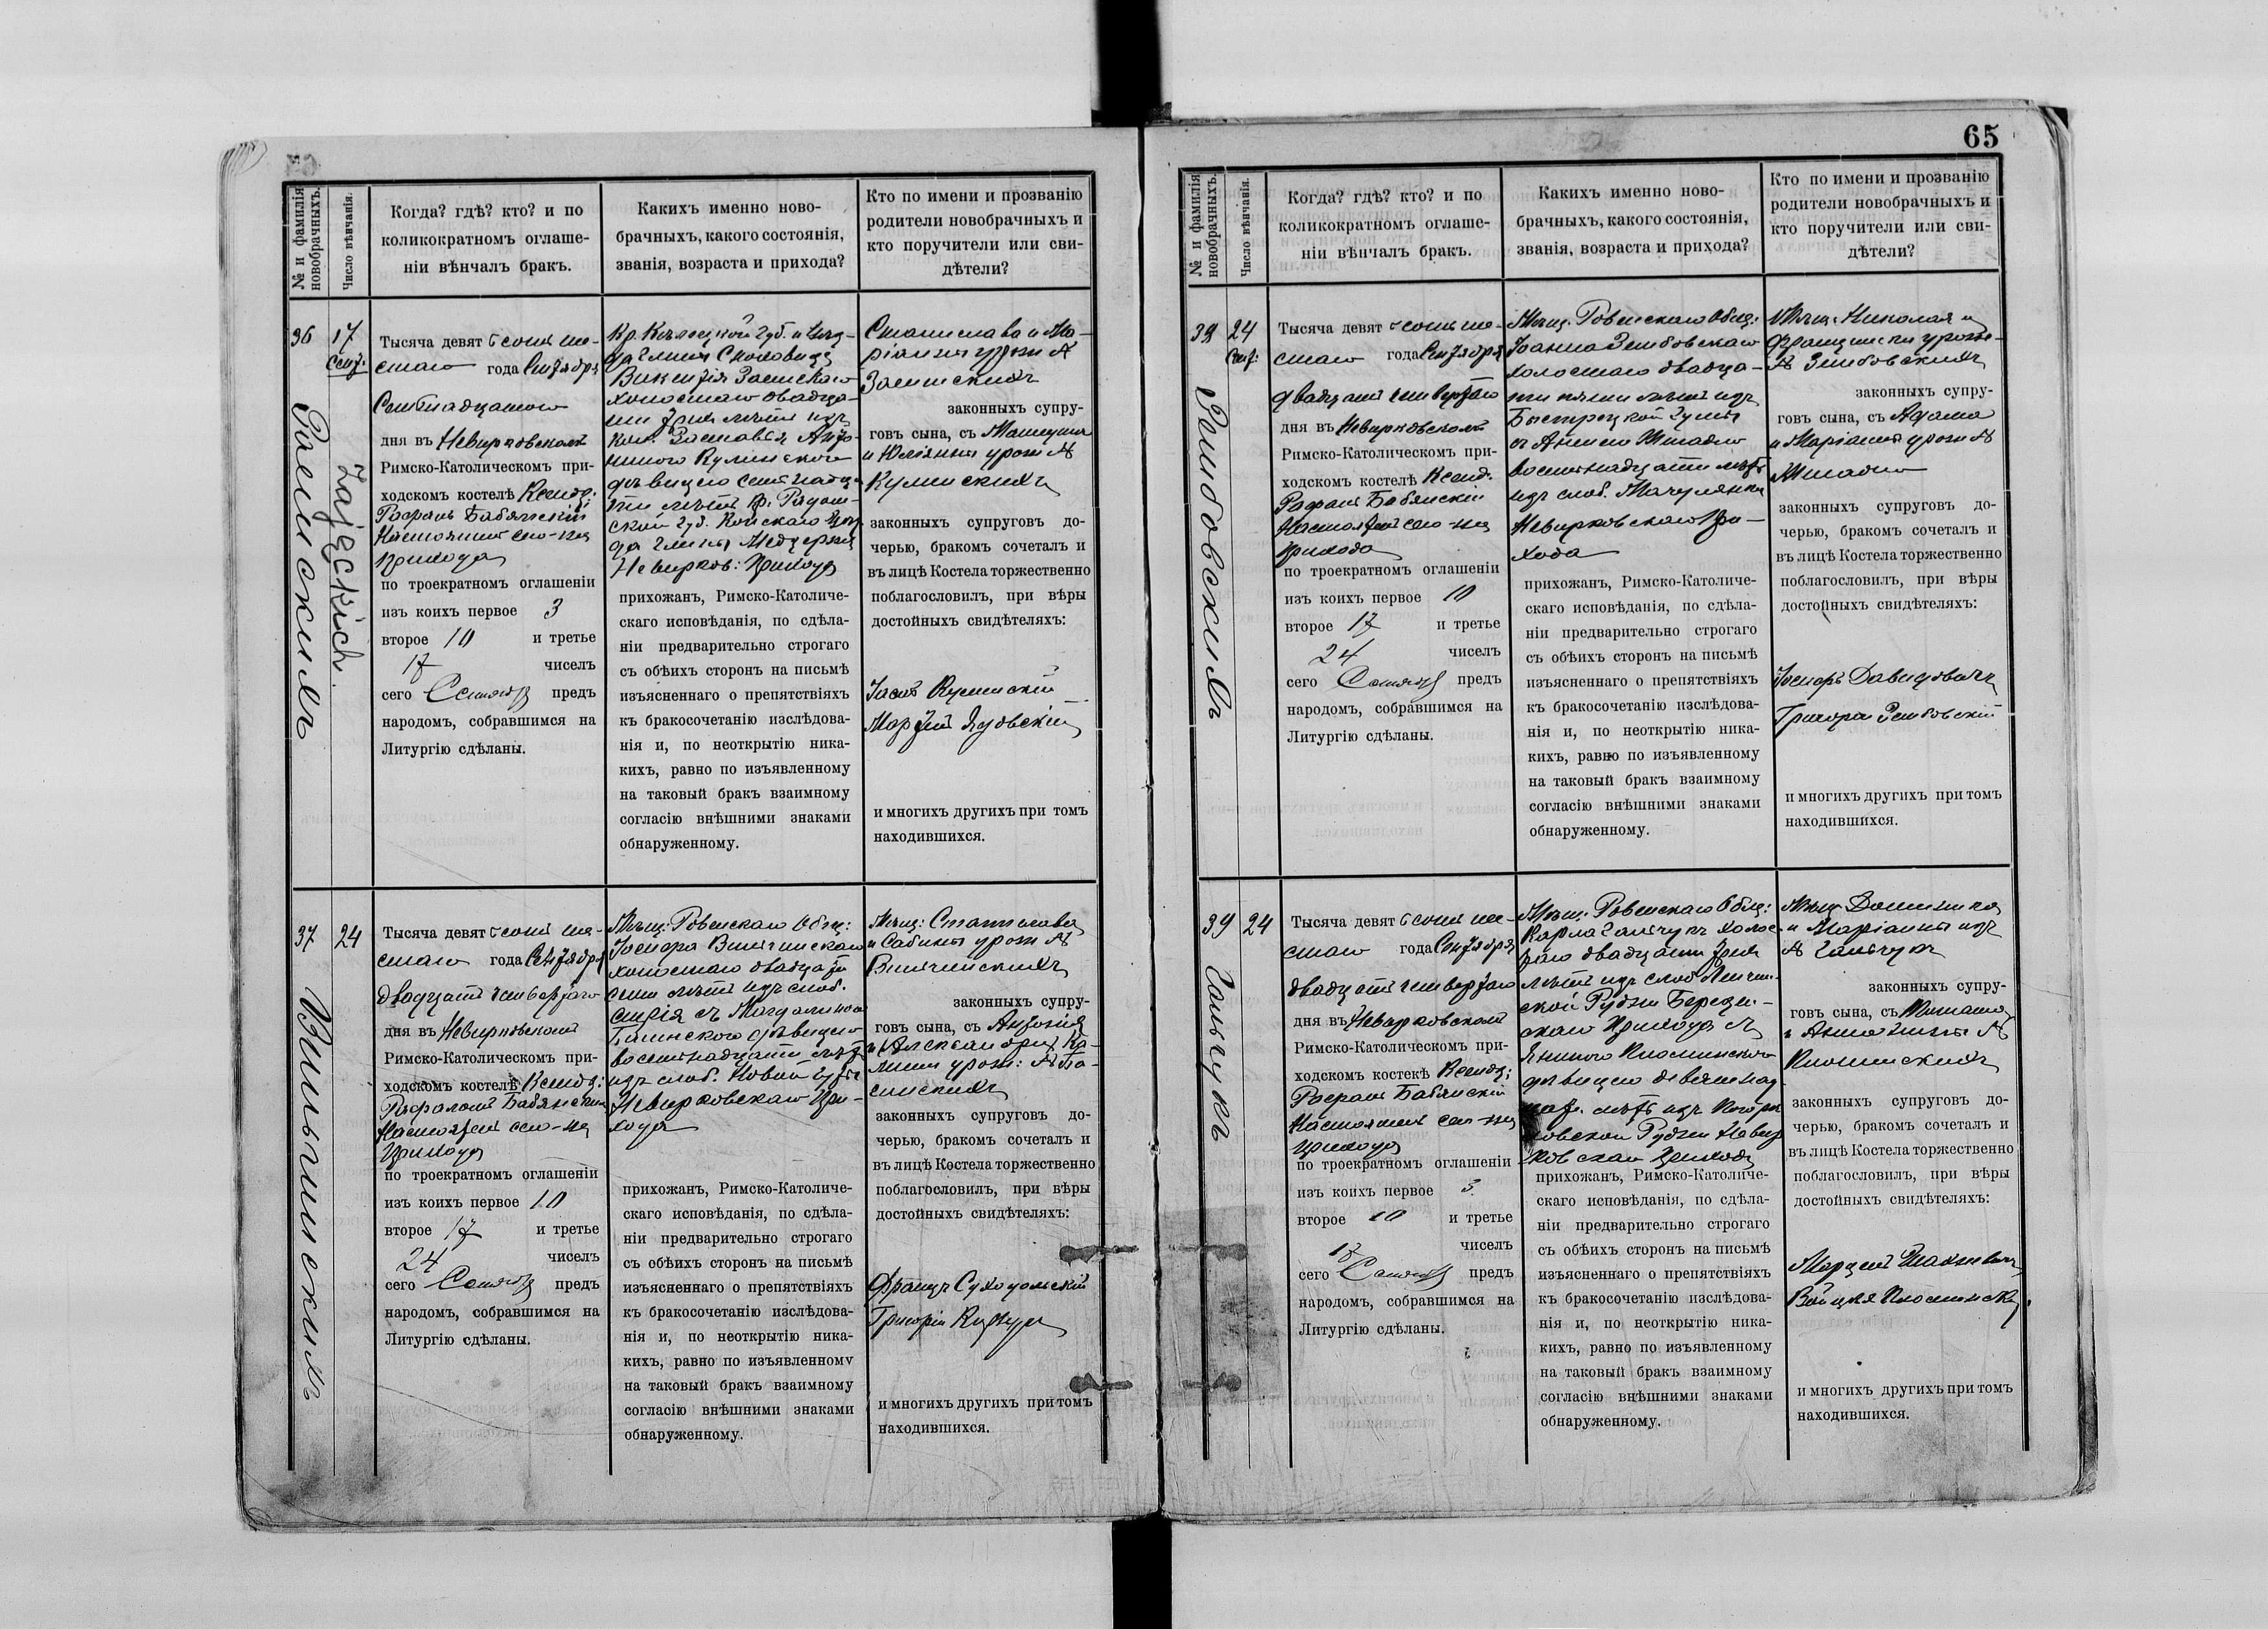 № и фамилія новобрачныхъ.
Число вѣнчанія.
Когда? гдѣ? кто? и по
коликократномъ оглаше-
ніи вѣнчалъ бракъ.
Какихъ именно ново-
брачныхъ, какого состоянія,
званія, возраста и прихода?
Кто по имени и прозванію
родители новобрачныхъ и
кто поручители или сви-
дѣтели?
36
17
Сент:
Заенскихъ
Zajęckich.
Тысяча девят сотъ ше-
стаго года Сентября
Семнадцатого
дня въ Невирковскомъ
Римско-Католическомъ при-
ходскомъ костелѣ Ксендз:
Рафалъ Бабянскій
Настоятель сего-же
прихода
по троекратномъ оглашеніи
изъ коихъ первое 3
второе 10 и третье
17 чиселъ
сего предъ
народомъ, собравшимся на
Литургію сдѣланы.
Кр. Кѣлецкой губ. и уѣз-
да гмины
Викентія Заенскаго
холостаго двадца-
ти трехъ лѣтъ изъ
кол. Анто-
ниною Кулинскою
дѣвицею семнадца-
ти лѣтъ кр. Радом-
ской губ. уѣз-
да гмины
Невирков: прихода
прихожанъ, Римско-Католиче-
скаго исповѣданія, по сдѣла-
ніи предварительно строгаго
съ обѣихъ сторонъ на письмѣ
изъясненнаго о препятствіяхъ
къ бракосочетанію изслѣдова-
нія и, по неоткрытію ника-
кихъ, равно по изъявленному
на таковый бракъ взаимному
согласію внѣшними знаками
обнаруженному.
Станислава и Ма-
ріанны урож N
Заенскихъ
законныхъ супру-
говъ сына, съ
и Юліанны урож N
Кулинскихъ
законныхъ супруговъ до-
черью, бракомъ сочеталъ и
въ лицѣ Костела торжественно
поблагословилъ, при вѣры
достойныхъ свидѣтеляхъ:
и многихъ другихъ при томъ
находившихся.
37
24
Вильчинскихъ
Тысяча девят сотъ ше-
стаго года Сентября
двадцать четвертаго
дня въ Невирковскомъ
Римско-Католическомъ при-
ходскомъ костелѣ Ксендз:
Рафаломъ Бабянскимъ
Настоятель сего-же
прихода
по троекратномъ оглашеніи
изъ коихъ первое 10
второе 17 и третье
24 чиселъ
сего предъ
народомъ, собравшимся на
Литургію сдѣланы.
Мѣщ: Ровенскаго Общ:
Іосифа Вильчинскаго
холостаго двадцати
семи лѣтъ изъ слоб.
съ Магдалиною
дѣвицею
восемнадцати лѣтъ
изъ слоб. Новой Гуты
Невирковскаго при-
хода
прихожанъ, Римско-Католиче-
скаго исповѣданія, по сдѣла-
ніи предварительно строгаго
съ обѣихъ сторонъ на письмѣ
изъясненнаго о препятствіяхъ
къ бракосочетанію изслѣдова-
нія и, по неоткрытію ника-
кихъ, равно по изъявленному
на таковый бракъ взаимному
согласію внѣшними знаками
обнаруженному.
Мѣщ: Станислава
и Сабины урож N
Вильчинскихъ
законныхъ супру-
говъ сына, съ Антонія
и Александры
законныхъ супруговъ до-
черью, бракомъ сочеталъ и
въ лицѣ Костела торжественно
поблагословилъ, при вѣры
достойныхъ свидѣтеляхъ:
Францъ Суходольскій
Григорій
и многихъ другихъ при томъ
находившихся.
65
№ и фамилія новобрачныхъ.
Число вѣнчанія.
Когда? гдѣ? кто? и по
коликократномъ оглаше-
ніи вѣнчалъ бракъ.
Какихъ именно ново-
брачныхъ, какого состоянія,
званія, возраста и прихода?
Кто по имени и прозванію
родители новобрачныхъ и
кто поручители или сви-
дѣтели?
24
Сент:
Зембовскихъ
Тысяча девят сотъ ше-
стаго года Сентября
двадцать четвертаго
дня въ Невирковскомъ
Римско-Католическомъ при-
ходскомъ костелѣ Ксендз:
Рафалъ Бабянскій
Настоятель сего-же
прихода
по троекратномъ оглашеніи
изъ коихъ первое 10
второе 17 и третье
24 чиселъ
сего предъ
народомъ, собравшимся на
Литургію сдѣланы.
Мѣщ. Ровенскаго Общ:
Іоанна Зембовскаго
холостаго двадца-
ти пяти лѣтъ изъ
Быстрецкой Гуты
съ Анною
восемнадцати лѣтъ
изъ слоб. Мачулянки
Невирковскаго при-
хода
прихожанъ, Римско-Католиче-
скаго исповѣданія, по сдѣла-
ніи предварительно строгаго
съ обѣихъ сторонъ на письмѣ
изъясненнаго о препятствіяхъ
къ бракосочетанію изслѣдова-
нія и, по неоткрытію ника-
кихъ, равно по изъявленному
на таковый бракъ взаимному
согласію внѣшними знаками
обнаруженному.
Мѣщ. Николая и
Францишки урож-
N Зембовскихъ
законныхъ супру-
говъ сына, съ Адама
и Маріанны урож N
законныхъ супруговъ до-
черью, бракомъ сочеталъ и
въ лицѣ Костела торжественно
поблагословилъ, при вѣры
достойныхъ свидѣтеляхъ:
Іосифъ Давидовичъ
Зембовскій
и многихъ другихъ при томъ
находившихся.
39
24
Гальчукъ
Тысяча девят сотъ ше-
стаго года Сентября
двадцать четвертаго
дня въ Невирковскомъ
Римско-Католическомъ при-
ходскомъ костекѣ Ксендз:
Рафалъ Бабянскій
Настоятель сего-же
прихода
по троекратномъ оглашеніи
изъ коихъ первое 3
второе 10 и третье
17 чиселъ
сего предъ
народомъ, собравшимся на
Литургію сдѣланы.
Мѣщ. Ровенскаго Общ:
Карла Гальчукъ холос-
таго двадцати трехъ
лѣтъ изъ слоб
Рудни
скаго прихода съ
дѣвицею девятнад
лѣтъ изъ
Рудни Невир
ковскаго прихода
прихожанъ, Римско-Католиче-
скаго исповѣданія, по сдѣла-
ніи предварительно строгаго
съ обѣихъ сторонъ на письмѣ
изъясненнаго о препятствіяхъ
къ бракосочетанію изслѣдова-
нія и, по неоткрытію ника-
кихъ, равно по изъявленному
на таковый бракъ взаимному
согласію внѣшними знаками
обнаруженному.
Мѣщ. Доминика
и Маріанны
N Гальчукъ
законныхъ супру-
говъ сына, съ
законныхъ супруговъ до-
черью, бракомъ сочеталъ и
въ лицѣ Костела торжественно
поблагословилъ, при вѣры
достойныхъ свидѣтеляхъ:
и многихъ другихъ при томъ
находившихся.